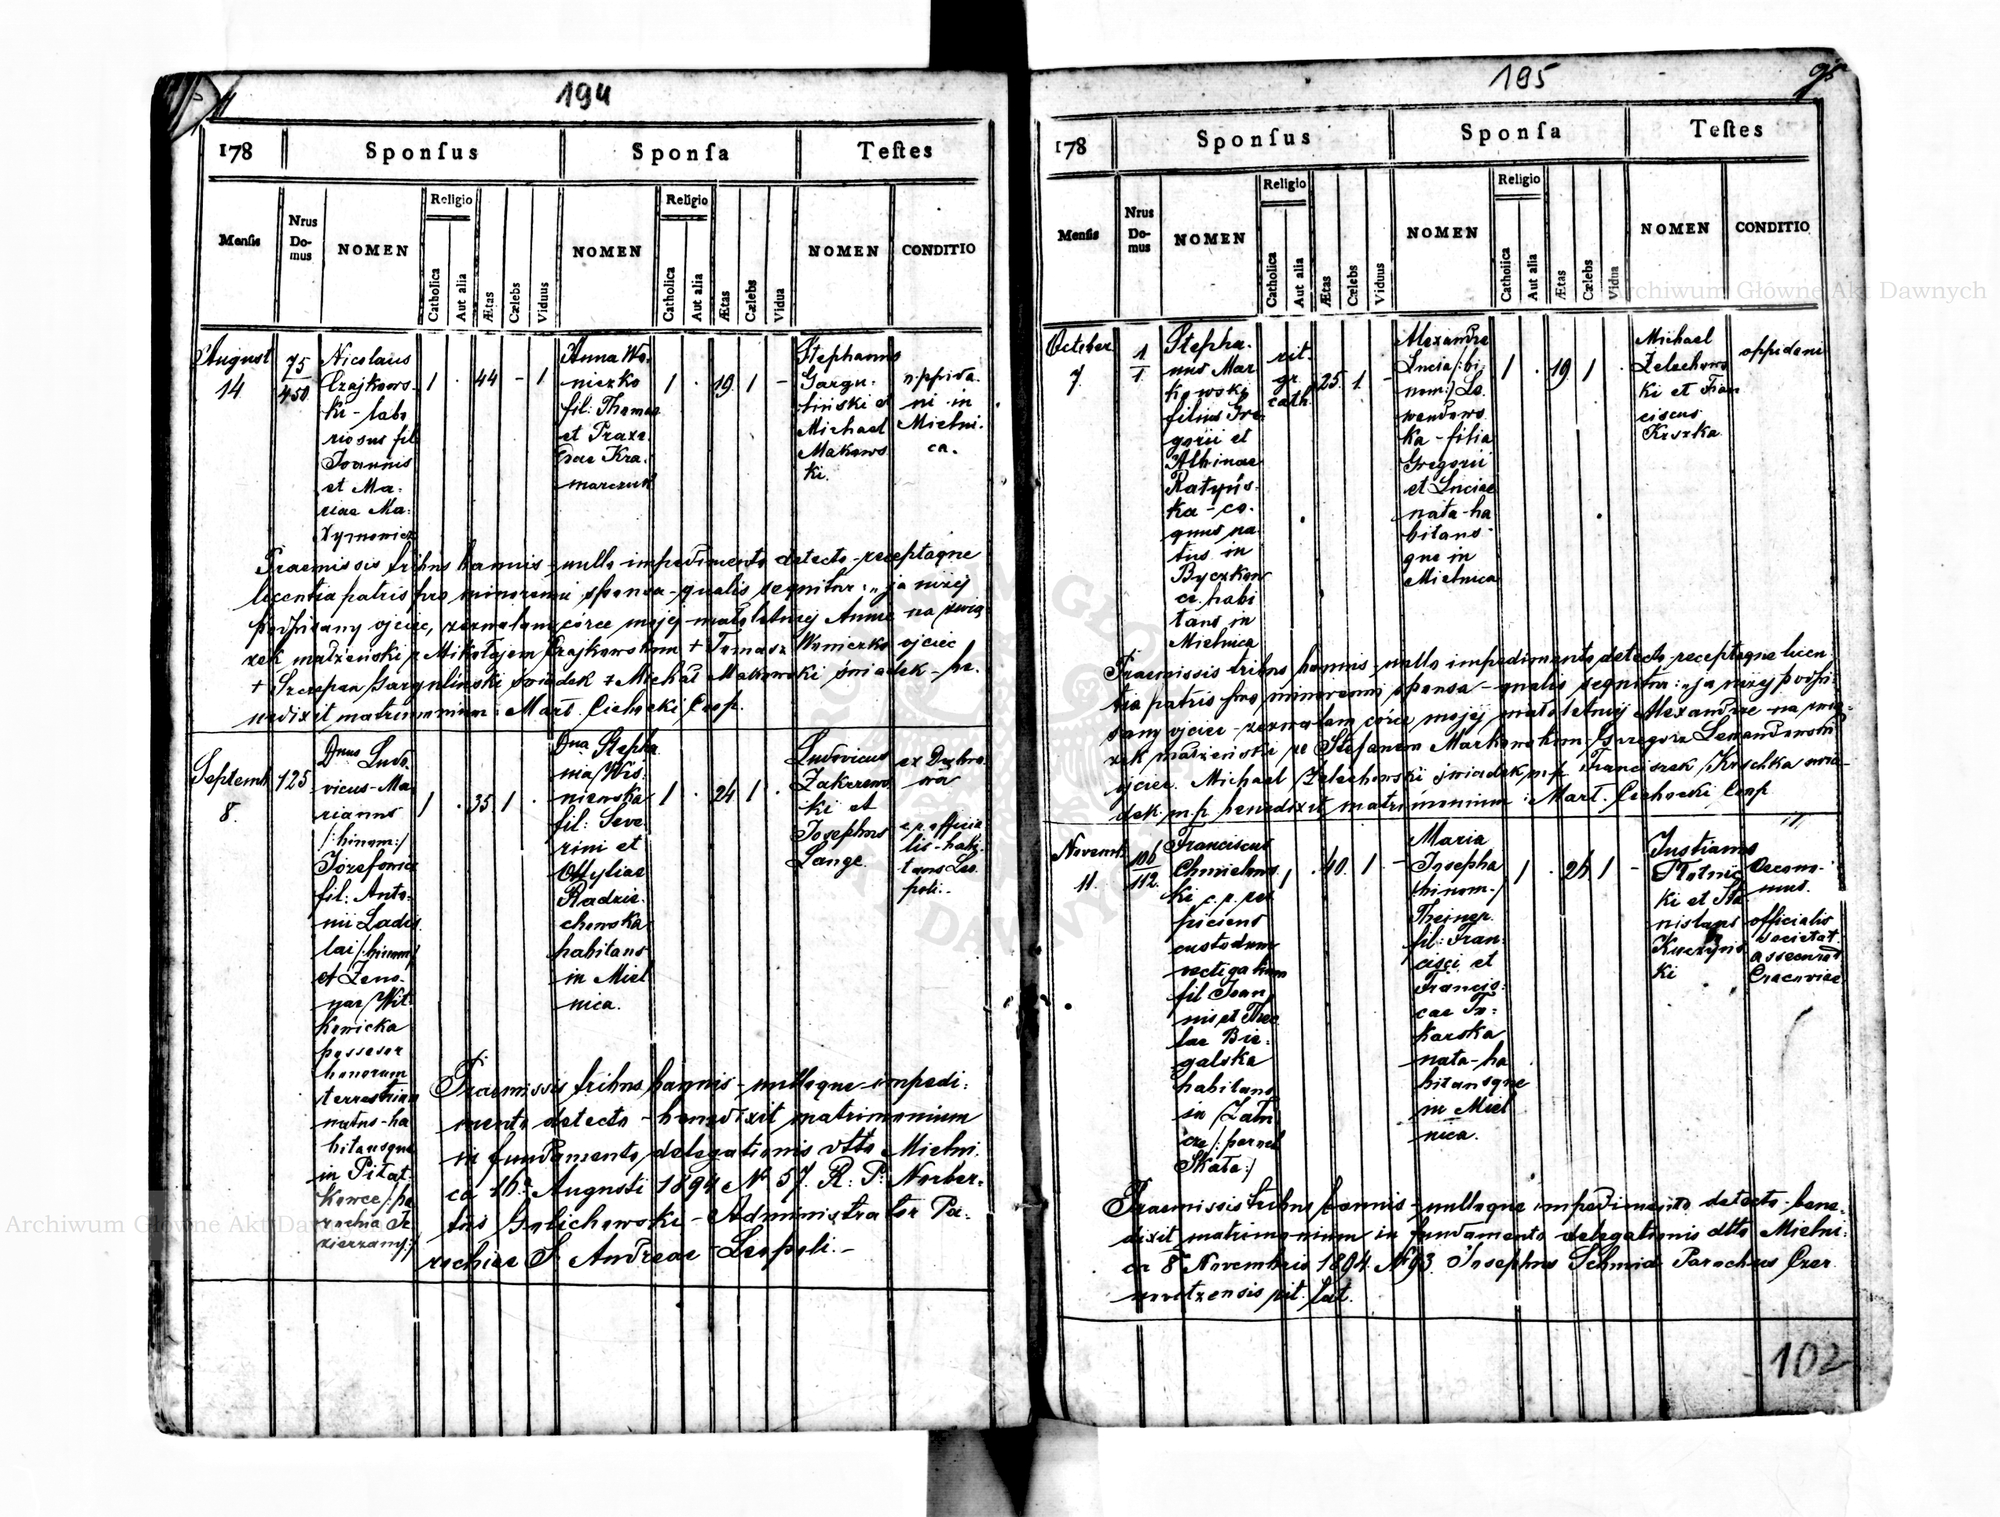 194
178
Sponſus
Sponſa
Teſtes
Menſis
Nrus
Do-
mus
NOMEN
Religio
Catholica
Aut alia
Ætas
Cælebs
Viduus
NOMEN
Religio
Catholica
Aut alia
Ætas
Cælebs
Vidua
NOMEN
CONDITIO
August
14
75
450
Nicolaus
Czajkows-
ki - labo
riosus fil
Joannis
et Ma-
riae Ma-
xymowicz
1 . 44 - 1
Anna Wo-
niczko
fil: Thomae
et Praxe-
dae Kra-
marczuk
1 . 19 1 -
Stephanus
Gargu-
liński et
Michael
Makows
ki.
oppida-
ni in
Mielni-
ca.
Praemissis tribus bannis - nullo impedimento detecto - receptaque
licentia patris pro minorenni sponsa - qualis sequitur: „ja niżej
podpisany ojciec, zezwalam córce mojej małoletniej Annie na zwią
zek małżeński z Mikołajem Czajkowskim + Tomasz Woniczko ojciec
+ Szczepan Gargulinski świadek + Michał Makowski świadek - be-
nedixit matrimonium: Mart. Cichocki Coop.
Septemb
8.
125
Dnus Ludo
vicus-Ma
rianus
/:binom:/
Józefowicz
fil: Anto-
nii Ladis
lai /:binom/
et Zeno-
nae Wit-
kowicka
possesor
bonorum
terrestrium
natus-ha
bitansque
in Piłat-
kowce /:pa
rochia Je
zierzany:/
1 . 35 1 .
Dna Stepha
nia Wis-
niewska
fil: Seve-
rini et
Ottyliae
Radzie-
chowska
habitans
in Miel
nica.
1 . 24 1 .
Ludovicus
Zakrzews
ki et
Josephus
Lange
ex Dąbro-
wa
c. r. officia
lis - habi-
tans Leo-
poli.-
Praemissis tribus bannis - nulloque impedi-
mento detecto - benedixit matrimonium
in fundamento delegationis dtto Mielni-
ca 16º Augusti 1894 Nº 57. R. P. Norber-
tus Golichowski - Administrator Pa-
rochiae S. Andreae - Leopoli.-
195
95
178
Sponſus
Sponſa
Teſtes
Menſis
Nrus
Do-
mus
NOMEN
Religio
Catholica
Aut alia
Ætas
Cælebs
Viduus
NOMEN
Religio
Catholica
Aut alia
Ætas
Cælebs
Vidua
NOMEN
CONDITIO
October
7.
1
1
Stepha-
nus Mar
kowski
filius Gre-
gorii et
Albinae
Ratyńs-
ka - co-
quus na
tus in
Byczkow
ce habi
tans in
Mielnica
rit.
gr.
cath.
25 1 -
Alexandra
Lucia /:bi
nom:/ Le
wandows
ka - filia
Gregorii
et Luciae
nata - ha
bitans-
que in
Mielnica
1 . 19 1 .
Michael
Zelechows
ki et Fran
ciscus
Krszka
oppidani
Praemissis tribus bannis - nullo impedimento detecto - receptaque licen-
tia patris pro minorenni sponsa - qualis sequitur: „ja niżej podpi-
sany ojciec - zezwalam córce mojej małoletniej Alexandrze - na zwią-
zek małżeński ze Stefanem Markowskim - Grzegorz Lewandowski
ojciec. Michael Zelechowski świadek m.p. Franciszek Krschka świa-
dek m.p. benedixit matrimonium: Mart. Cichocki Coop
Novemb.
11.
106
112.
Franciscus
Chmielows
ki c. r. res
piciens
custodum
vectigalium
fil Joan
nis et The
lae Bie-
galska
habitans
in Zału
cze /: penes
Skała:/
1 . 40. 1 -
Maria
Josepha
/binom-/
Theiner
fil: Fran-
cisci et
Francis-
cae To-
karska
nata - ha
bitansque
in Miel
nica.
1 . 26 1 -
Justianus
Płotnic
ki et Sta
nislaus
Kuczyńs
ki
Oecono-
mus.
officialis
societat.
assecurat
Cracoviae
Praemissis tribus bannis - nulloque impedimento detecto - bene-
dixit matrimonium in fundamento delegationis dtto Mielni-
ca 8 Novembris 1894 Nº 93. Josephus Schmid Parochus Czer-
novitzensis rit. lat.
102
Archiwum Główne Akt Dawnych
Archiwum Główne Akt Dawnych